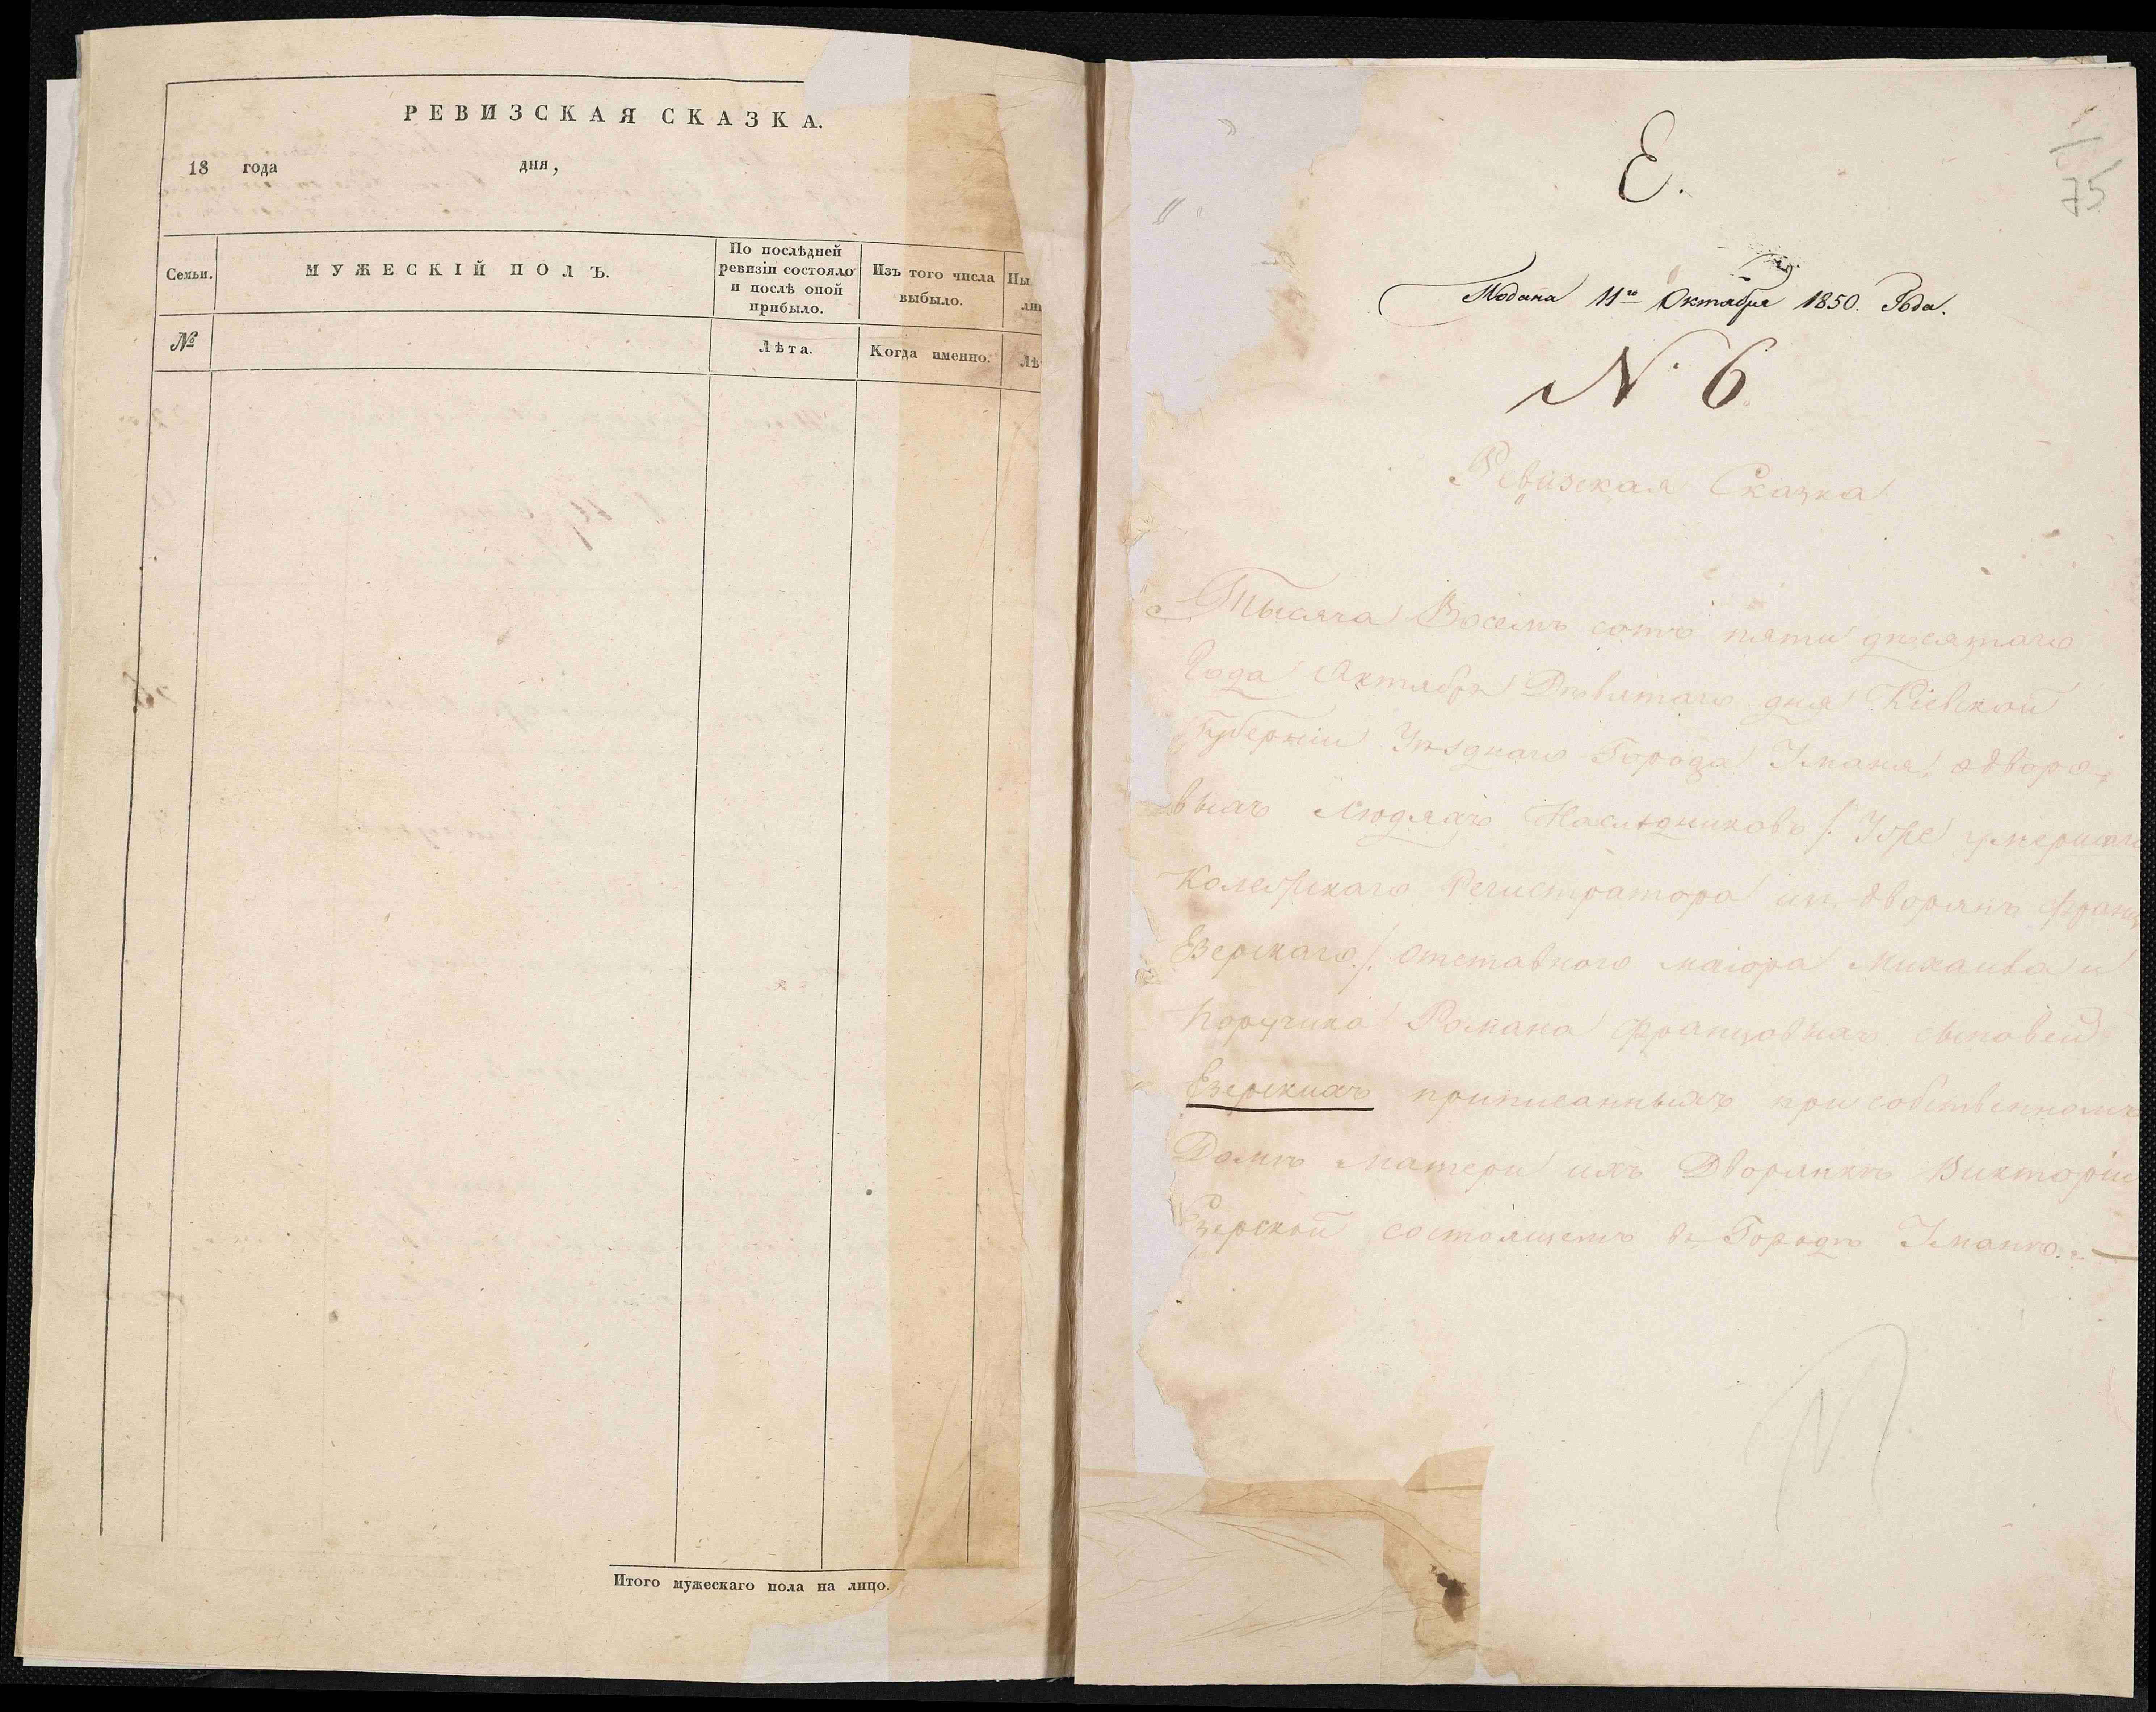 РЕВИЗСКАЯ СКАЗКА.
18 года дня,
Семьи.
МУЖЕСКІЙ ПОЛЪ.
По послѣдней
ревизіи состояло
и послѣ оной
прибыло.
Изъ того числа
выбыло.
Ны
ли
№
Лѣта.
Когда именно.
Лѣ
Итого мужескаго пола на лицо.
Е.
75
Подана 11го Октября 1850. Года.
N. 6
Ревизская Сказка
Тысяча Восемь сотъ пяти десятаго
Года Октября Девятаго дня Кіевской
Губерніи Уѣзднаго Города Уманя, одворо-
выхъ людяхъ Наслѣдниковъ /: Уже умершаго
Колежскаго Регистратора изъ дворянъ Франц
Езерскаго :/ отставного маіора Михаила и
Поручика Романа Францовыхъ сыновей
Езерскихъ приписанныхъ при собственномъ
Домѣ матери ихъ Дворянкѣ Викторіи
Езерской состоящемъ въ Городѣ Уманѣ.